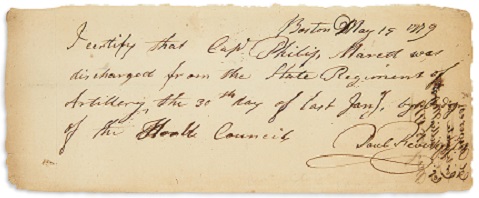 Boston May 15 1779
I certify that Cap.t Philip Marett was
discharged from the State Regiment of
Artillery, the 30th day of last Jany, by order
of the Honble Council
Paul Revere